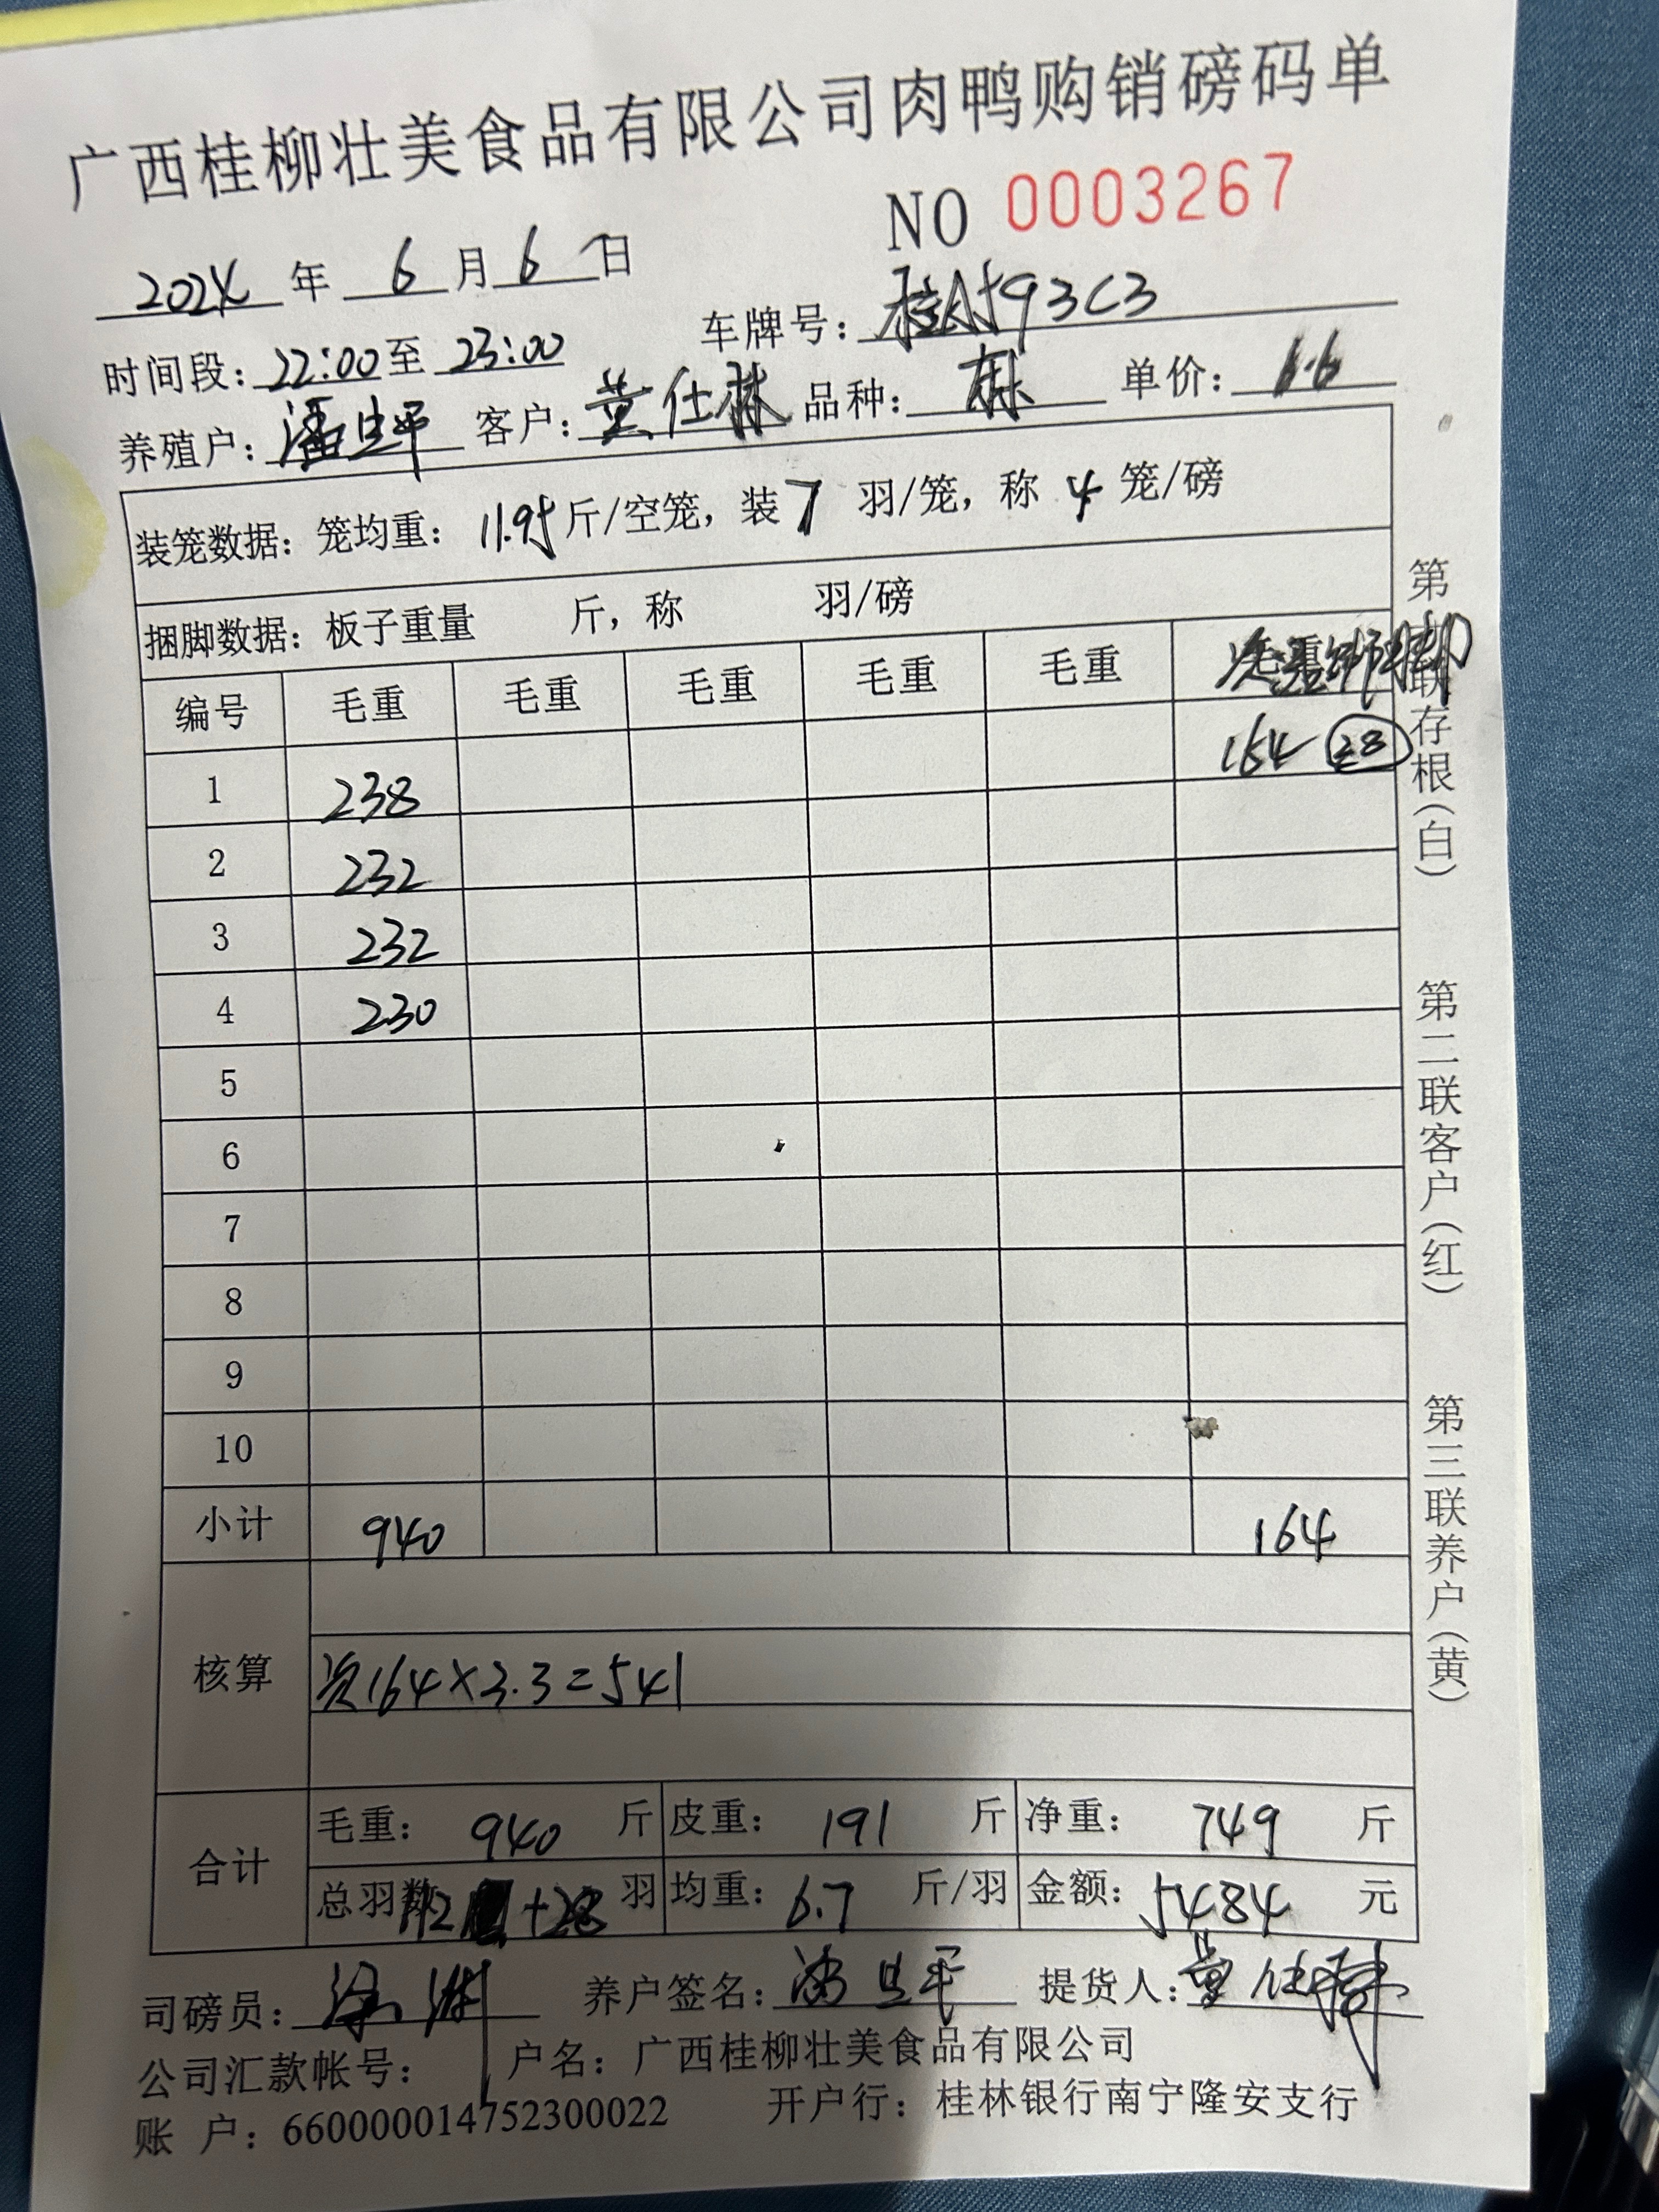 广西桂柳壮美食品有限公司肉鸭购销磅码单
NO 0003267
2024 年 6 月 6 日
时间段：22:00 至 23:00 车牌号：桂AF93C3
养殖户：潘 平 客户：黄仕林 品种： 单价：6.6
装笼数据：笼均重：11.95斤/空笼，装 7 羽/笼，称 4 笼/磅
捆脚数据：板子重量 斤，称 羽/磅
编号 毛重 毛重 毛重 毛重 毛重
1 238 164 28
2 232
3 232
4 230
5
6
7
8
9
10
小计 940 164
核算
次164×3.3=541
合计
毛重：940 斤 皮重：191 斤 净重：749 斤
总羽数 112 +28 羽 均重：6.7 斤/羽 金额：5484 元
司磅员： 养户签名：潘 平 提货人：黄仕林
公司汇款帐号： 户名：广西桂柳壮美食品有限公司
账 户：660000014752300022 开户行：桂林银行南宁隆安支行
第 联存根（白）
第二联客户（红）
第三联养户（黄）